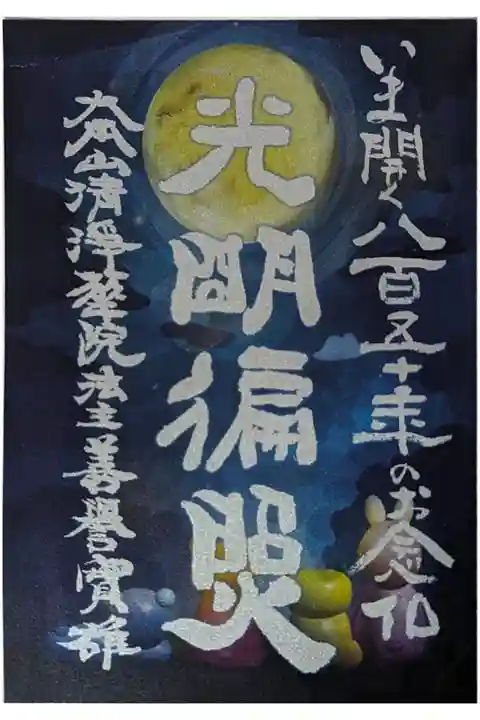 いま開く八百五十年のお念仏
光明徧照
大本山清浄華院法主善譽寶雄